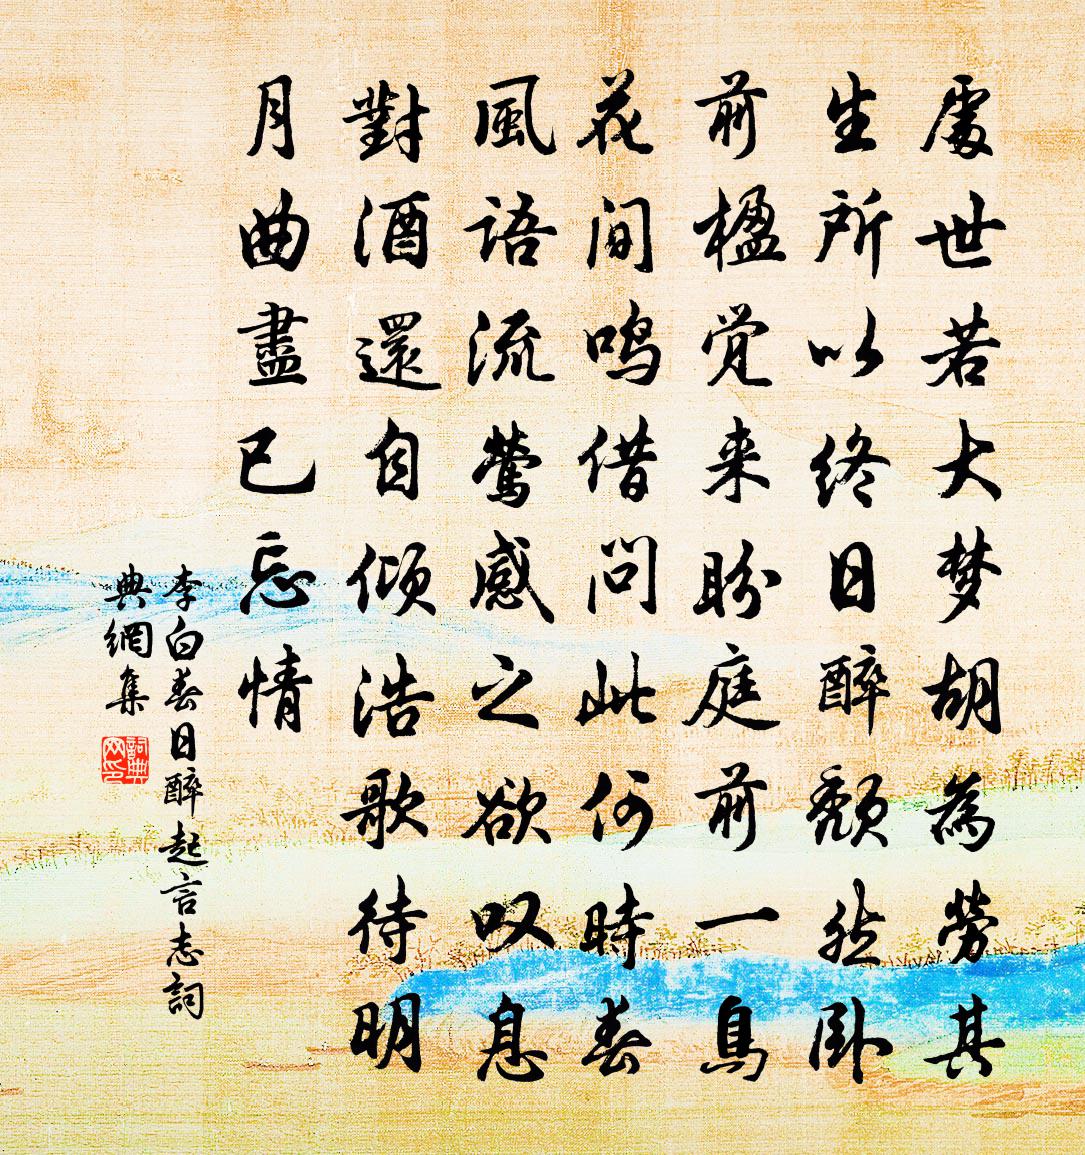 處世若大梦胡為勞其
生所以终日醉颓然卧
前楹觉来盼庭前一鳥
花间鸣借问此何時春
風語流莺感之欲叹息
對酒還自倾浩歌待明
月曲盡已忘情
李白春日醉起言志詞
典網集
詞典
网印